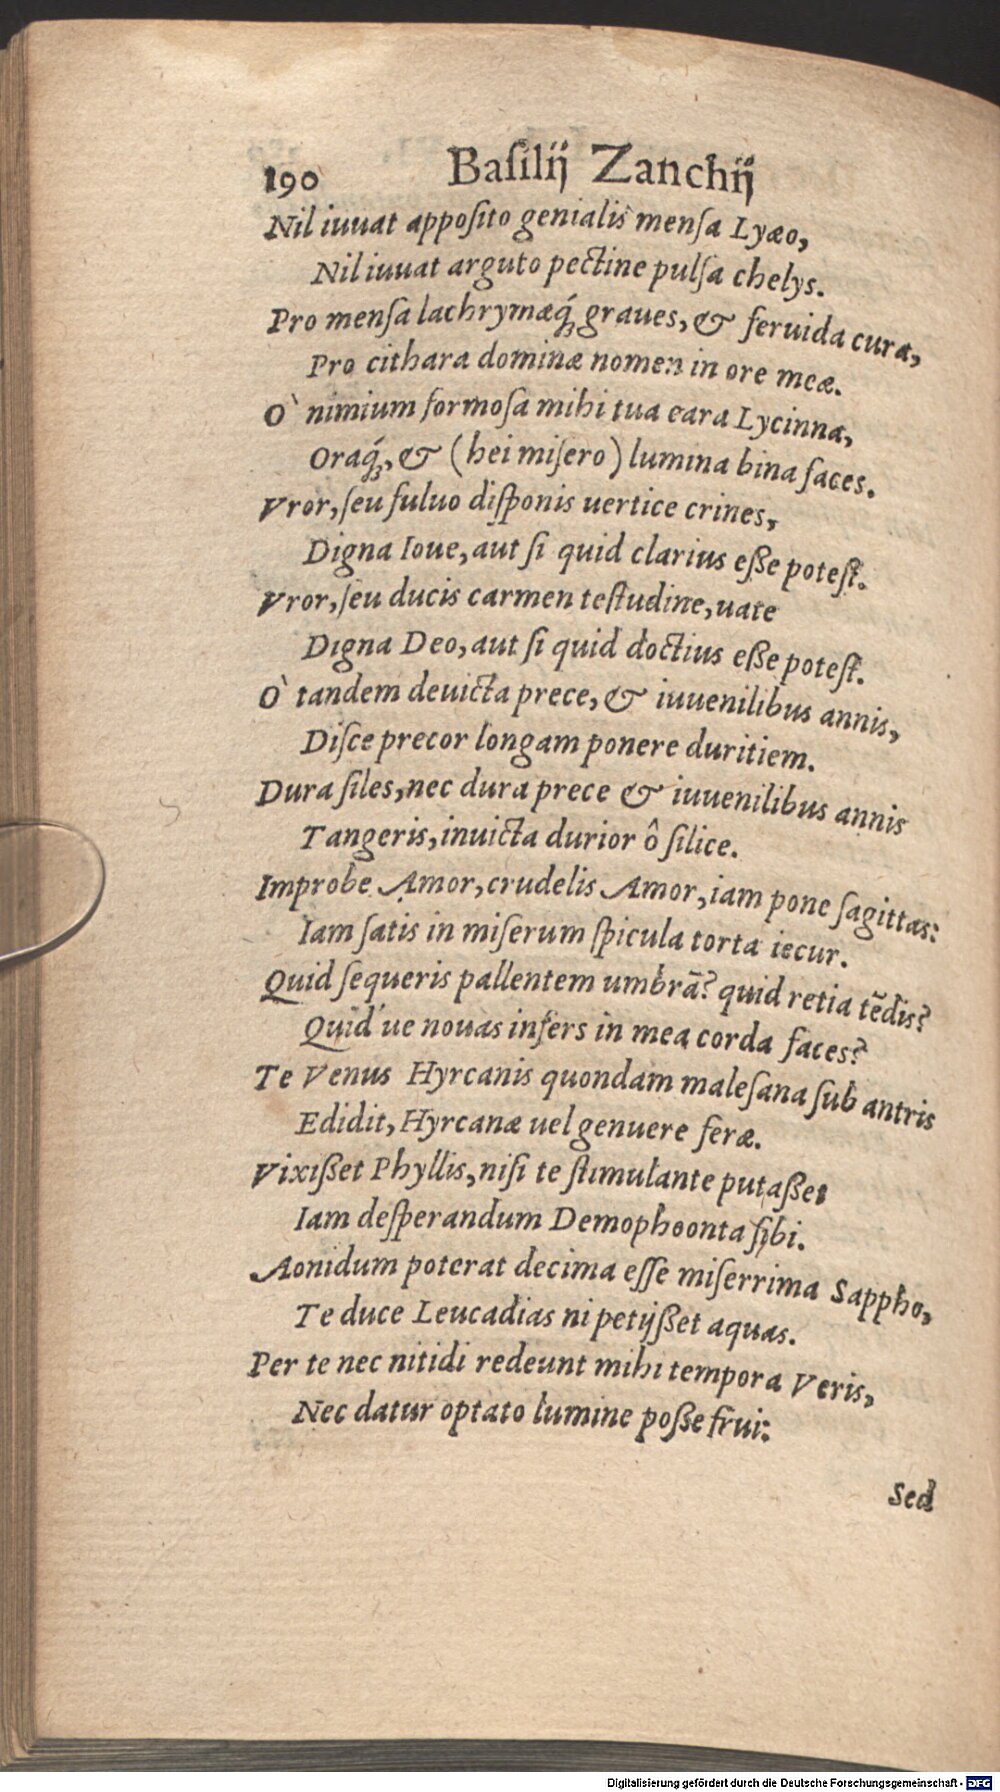 190 Baſilij Zanchij
Nil iuuat appoſito genialis menſa Lyæo,
Nil iuuat arguto pectine pulſa chelys.
Pro menſa lachrymæq́; graues, & feruida cura,
Pro cithara dominæ nomen in ore meæ.
O` nimium formoſa mihi tua cara Lycinna,
Oraq́;, & (hei miſero) lumina bina faces.
Vror, ſeu fuluo diſponis uertice crines,
Digna Ioue, aut ſi quid clarius eße poteſt.
Vror, ſeu ducis carmen teſtudine, uate
Digna Deo, aut ſi quid doctius eße poteſt.
O` tandem deuicta prece, & iuuenilibus annis,
Diſce precor longam ponere duritiem.
Dura ſiles, nec dura prece & iuuenilibus annis
Tangeris, inuicta durior ô ſilice.
Improbe Amor, crudelis Amor, iam pone ſagittas:
Iam ſatis in miſerum ſpicula torta iecur.
Quid ſequeris pallentem umbrā? quid retia tēdis?
Quid'ue nouas inſers in mea corda faces?
Te Venus Hyrcanis quondam maleſana ſub antris
Edidit, Hyrcanæ uel genuere feræ.
Vixißet Phyllis, niſi te ſtimulante putaßet
Iam deſperandum Demophoonta ſibi.
Aonidum poterat decima eſſe miſerrima Sappho,
Te duce Leucadias ni petijßet aquas.
Per te nec nitidi redeunt mihi tempora Veris,
Nec datur optato lumine poße frui:
Sed
Digitalisierung gefördert durch die Deutsche Forschungsgemeinschaft - DFG